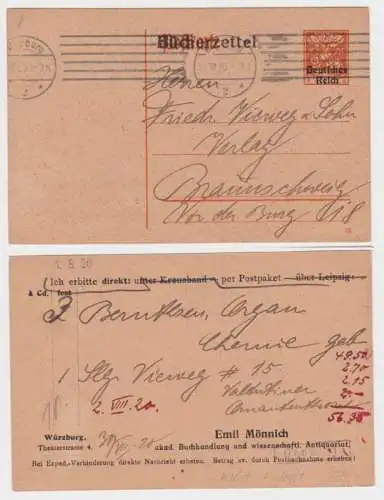 Bücherzettel
Deutsches
Reich
Herren
Friedr. Vieweg & Sohn
Verlag
Braunschweig
Vor der Burg 18
2.8.20
Ich erbitte direkt: unter Kreuzband — per Postpaket — über Leipzig:
à Cd. fest
3 Bernthsen, Organ
Chemie geb
49.50
2.70
1 Slg Vieweg # 15
2.15
Valentiner
2. VIII. 20.
56.35
Würzburg,
Theaterstrasse 4.
30/VII.-20
Emil Mönnich
akad. Buchhandlung und wissenschaftl. Antiquariat.
Bei Exped.-Verhinderung direkte Nachricht erbeten. Betrag ev. durch Postnachnahme erheben!